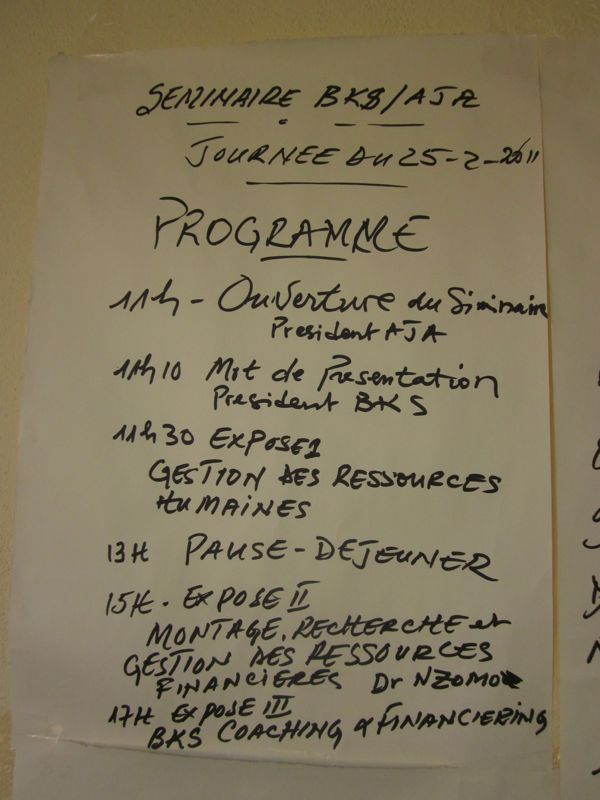 SEMINAIRE BKS/AJA
JOURNEE DU 25-2-2011
PROGRAMME
11h - Ouverture du Siminaire
President AJA
11h10 Mot de Presentation
President BKS
11h30 EXPOSE1
GESTION DES RESSOURCES
HUMAINES
13H PAUSE-DEJEUNER
15H. EXPOSE II
MONTAGE, RECHERCHE et
GESTION DES RESSOURCES
FINANCIERES Dr NZOMO
17H EXPOSE III
BKS COACHING & FINANCIERING